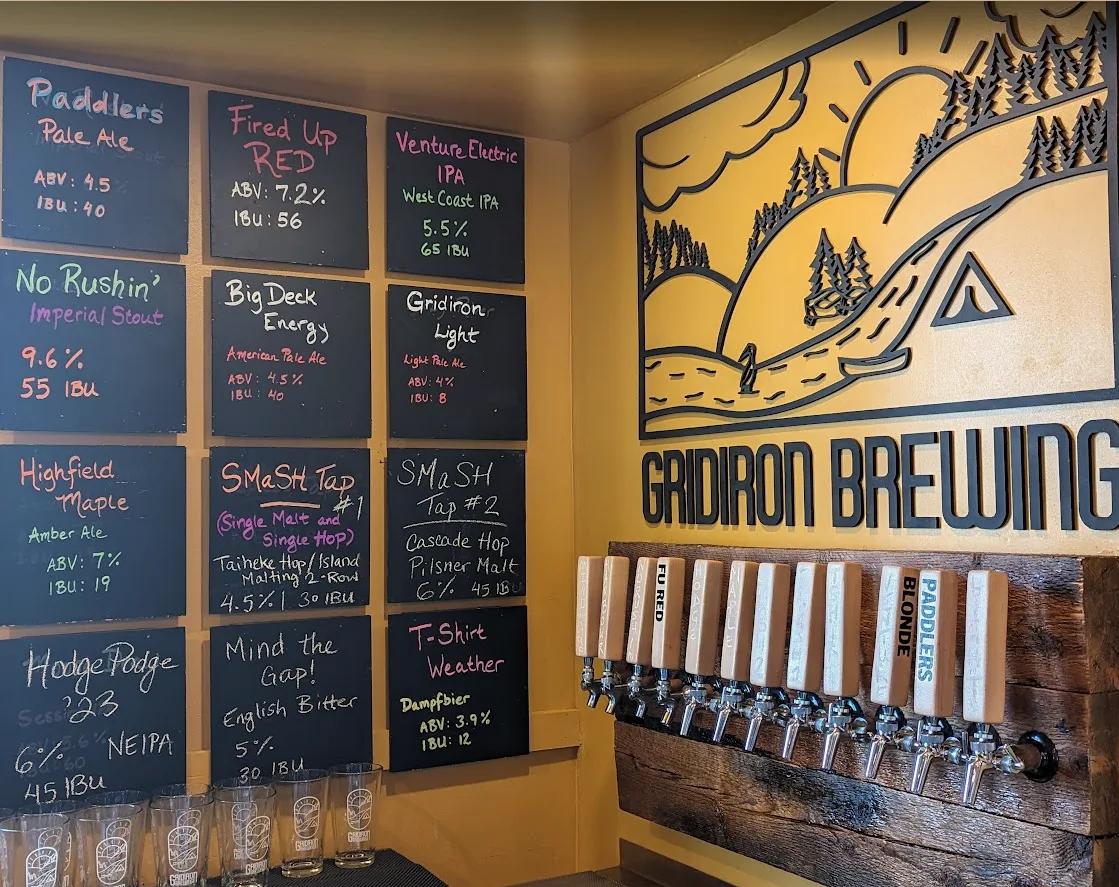 Paddlers
Pale Ale
ABV: 4.5
IBU: 40
Fired Up
RED
ABV: 7.2%
IBU: 56
Venture Electric
IPA
West Coast IPA
5.5%
65 IBU
No Rushin'
Imperial Stout
9.6%
55 IBU
Big Deck
Energy
American Pale Ale
ABV: 4.5%
IBU: 40
Gridiron
Light
Light Pale Ale
ABV: 4%
IBU: 8
Highfield
Maple
Amber Ale
ABV: 7%
IBU: 19
SMaSH Tap
#1
(Single Malt and
Single Hop)
Taiheke Hop/Island
Malting 2-Row
4.5% | 30 IBU
SMaSH
Tap #2
Cascade Hop
Pilsner Malt
6% 45 IBU
Hodge Podge
'23
6% NEIPA
45 IBU
Mind the
Gap!
English Bitter
5%
30 IBU
T-Shirt
Weather
Dampfbier
ABV: 3.9%
IBU: 12
GRIDIRON BREWING
FU RED
BLONDE
PADDLERS
GRIDIRON
GRIDIRON
GRIDIRON
GRIDIRON